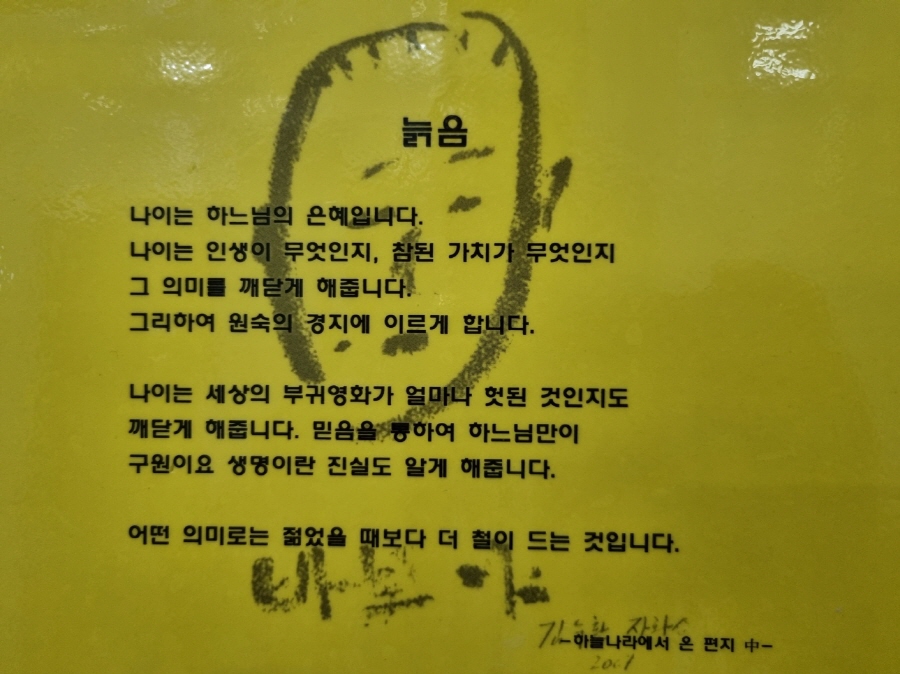 늙음
나이는 하느님의 은혜입니다.
나이는 인생이 무엇인지, 참된 가치가 무엇인지
그 의미를 깨닫게 해줍니다.
그리하여 원숙의 경지에 이르게 합니다.
나이는 세상의 부귀영화가 얼마나 헛된 것인지도
깨닫게 해줍니다. 믿음을 통하여 하느님만이
구원이요 생명이란 진실도 알게 해줍니다.
어떤 의미로는 젊었을 때보다 더 철이 드는 것입니다.
바보야
-하늘나라에서 온 편지 中-